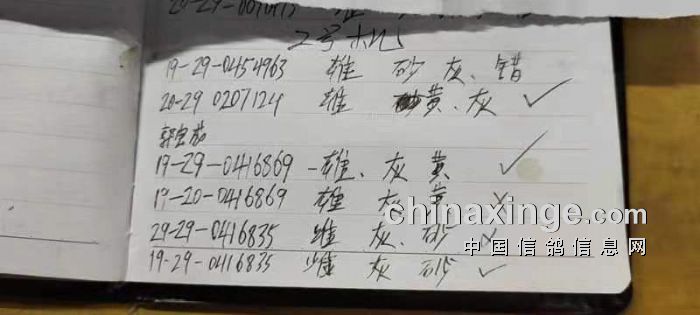 2号机
19-29-0454963 雄 砂 灰、错
20-29 0207124 雄 黄、灰 ✓
19-29-0416869 - 雄、灰 黄 ✓
19-20-0416869 雄 灰 黄 ×
29-29-0416835 雌 灰、砂 ×
19-29-0416835 雌 灰 砂 ✓
chinaxinge.com
中国信鸽信息网